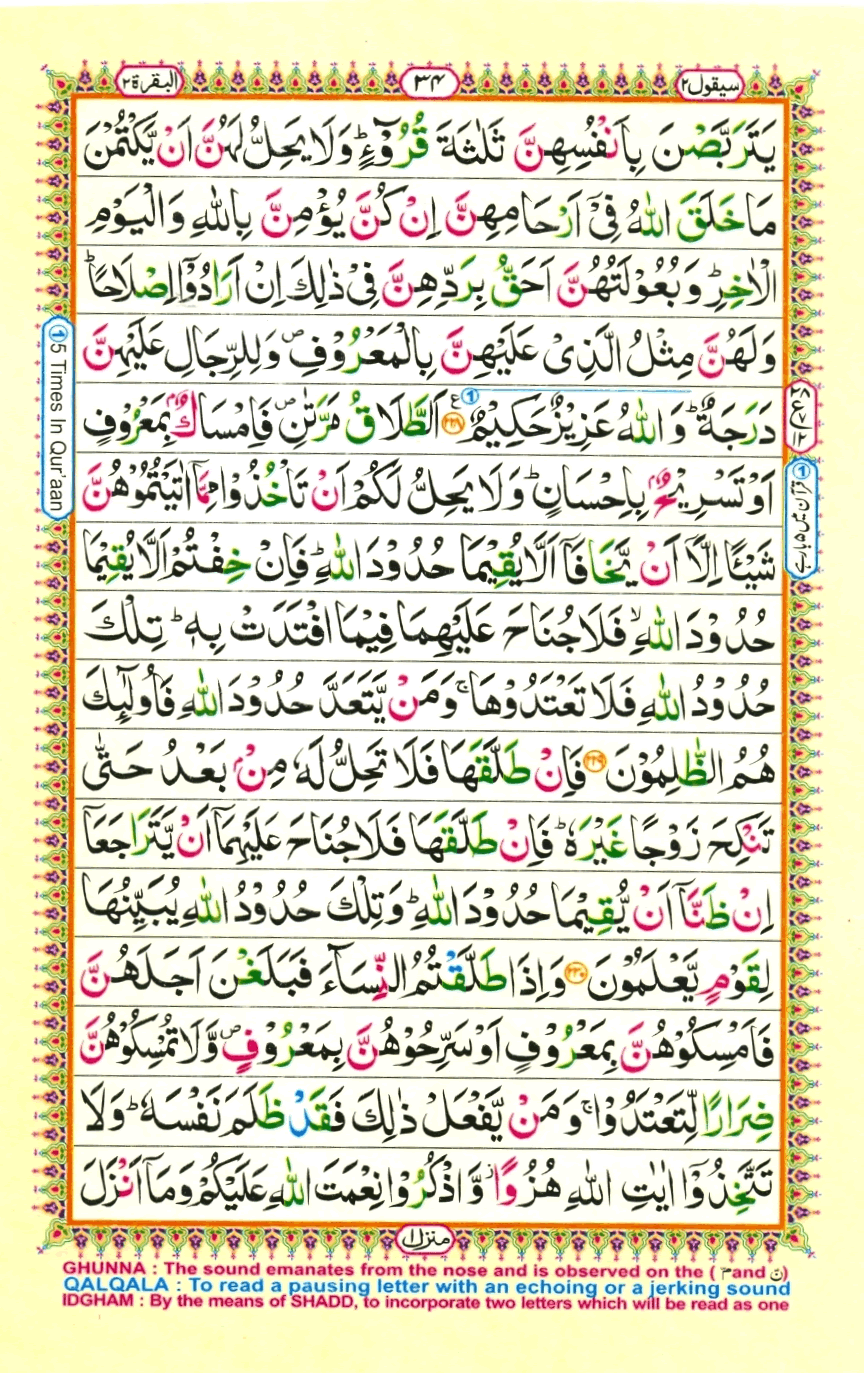 البقرة ٢
٣٤
سيقول ٢
يَتَرَبَّصْنَ بِاَنْفُسِهِنَّ ثَلٰثَةَ قُرُوْٓءٍ ؕ وَلَا يَحِلُّ لَهُنَّ اَنْ يَّكْتُمْنَ
مَا خَلَقَ اللّٰهُ فِيْۤ اَرْحَامِهِنَّ اِنْ كُنَّ يُؤْمِنَّ بِاللّٰهِ وَالْيَوْمِ
الْاٰخِرِ ؕ وَبُعُوْلَتُهُنَّ اَحَقُّ بِرَدِّهِنَّ فِيْ ذٰلِكَ اِنْ اَرَادُوْۤا اِصْلَاحًا ؕ
وَلَهُنَّ مِثْلُ الَّذِيْ عَلَيْهِنَّ بِالْمَعْرُوْفِ ۪ وَلِلرِّجَالِ عَلَيْهِنَّ
دَرَجَةٌ ؕ وَاللّٰهُ عَزِيْزٌ حَكِيْمٌ ﴿۲۲۸﴾ ع ① اَلطَّلَاقُ مَرَّتٰنِ ۪ فَاِمْسَاكٌۢ بِمَعْرُوْفٍ
اَوْ تَسْرِيْحٌۢ بِاِحْسَانٍ ؕ وَلَا يَحِلُّ لَكُمْ اَنْ تَاْخُذُوْا مِمَّاۤ اٰتَيْتُمُوْهُنَّ
شَيْـًٔا اِلَّاۤ اَنْ يَّخَافَاۤ اَلَّا يُقِيْمَا حُدُوْدَ اللّٰهِ ؕ فَاِنْ خِفْتُمْ اَلَّا يُقِيْمَا
حُدُوْدَ اللّٰهِ ۙ فَلَا جُنَاحَ عَلَيْهِمَا فِيْمَا افْتَدَتْ بِهٖ ؕ تِلْكَ
حُدُوْدُ اللّٰهِ فَلَا تَعْتَدُوْهَا ۚ وَمَنْ يَّتَعَدَّ حُدُوْدَ اللّٰهِ فَاُولٰٓئِكَ
هُمُ الظّٰلِمُوْنَ ﴿۲۲۹﴾ فَاِنْ طَلَّقَهَا فَلَا تَحِلُّ لَهٗ مِنْۢ بَعْدُ حَتّٰى
تَنْكِحَ زَوْجًا غَيْرَهٗ ؕ فَاِنْ طَلَّقَهَا فَلَا جُنَاحَ عَلَيْهِمَاۤ اَنْ يَّتَرَاجَعَاۤ
اِنْ ظَنَّاۤ اَنْ يُّقِيْمَا حُدُوْدَ اللّٰهِ ؕ وَتِلْكَ حُدُوْدُ اللّٰهِ يُبَيِّنُهَا
لِقَوْمٍ يَّعْلَمُوْنَ ﴿۲۳۰﴾ وَاِذَا طَلَّقْتُمُ النِّسَآءَ فَبَلَغْنَ اَجَلَهُنَّ
فَاَمْسِكُوْهُنَّ بِمَعْرُوْفٍ اَوْ سَرِّحُوْهُنَّ بِمَعْرُوْفٍ ۪ وَّلَا تُمْسِكُوْهُنَّ
ضِرَارًا لِّتَعْتَدُوْا ۚ وَمَنْ يَّفْعَلْ ذٰلِكَ فَقَدْ ظَلَمَ نَفْسَهٗ ؕ وَلَا
تَتَّخِذُوْۤا اٰيٰتِ اللّٰهِ هُزُوًا ۡ وَّاذْكُرُوْا نِعْمَتَ اللّٰهِ عَلَيْكُمْ وَمَاۤ اَنْزَلَ
① 5 Times In Qur'aan
① قرآن میں ۵ بار ہے
منزل ١
GHUNNA : The sound emanates from the nose and is observed on the ( م and ن)
QALQALA : To read a pausing letter with an echoing or a jerking sound
IDGHAM : By the means of SHADD, to incorporate two letters which will be read as one